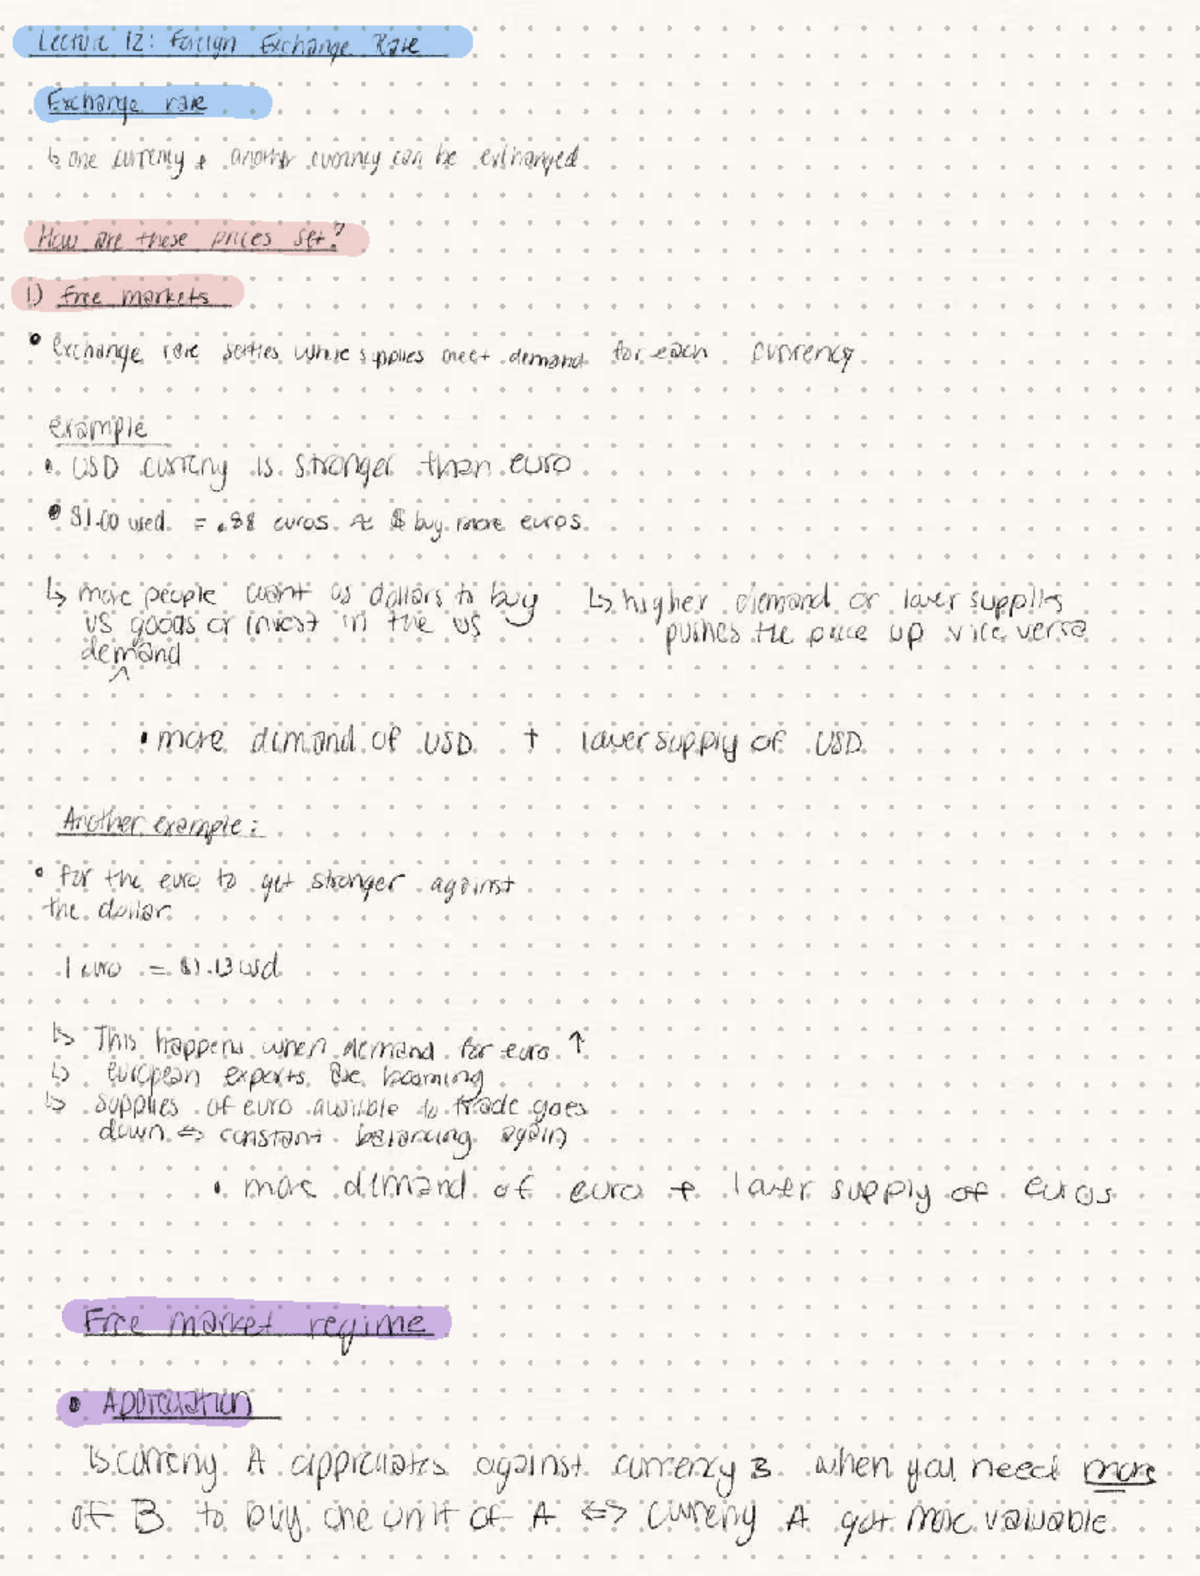 Lecture 12: Foreign Exchange Rate
Exchange rate
↳ one currency + another currency can be exchanged
How are these prices set?
1) free markets
• Exchange rate settles where supplies meet demand for each currency
example
• USD curreny is stronger than euro
• $1.00 used = .88 euros. At $ buy more euros
↳ more people want us dollars to buy
US goods or invest in the US
demand
^
↳ higher demand or lower supplies
pushes the price up vice versa
• more demand of USD + lower supply of USD
Another example:
• for the euro to get stronger against
the dollar
1 euro = $1.13 usd
↳ This happens when demand for euro ↑
↳ european exports are booming
↳ supplies of euro availible to trade goes
down ⇔ constant balancing again
• more demand of euro + lower supply of euros
Free market regime
• Appreciation
↳ curreny A appriciates against currency B when you need more
of B to buy one unit of A ⇔ curreny A got more valuable